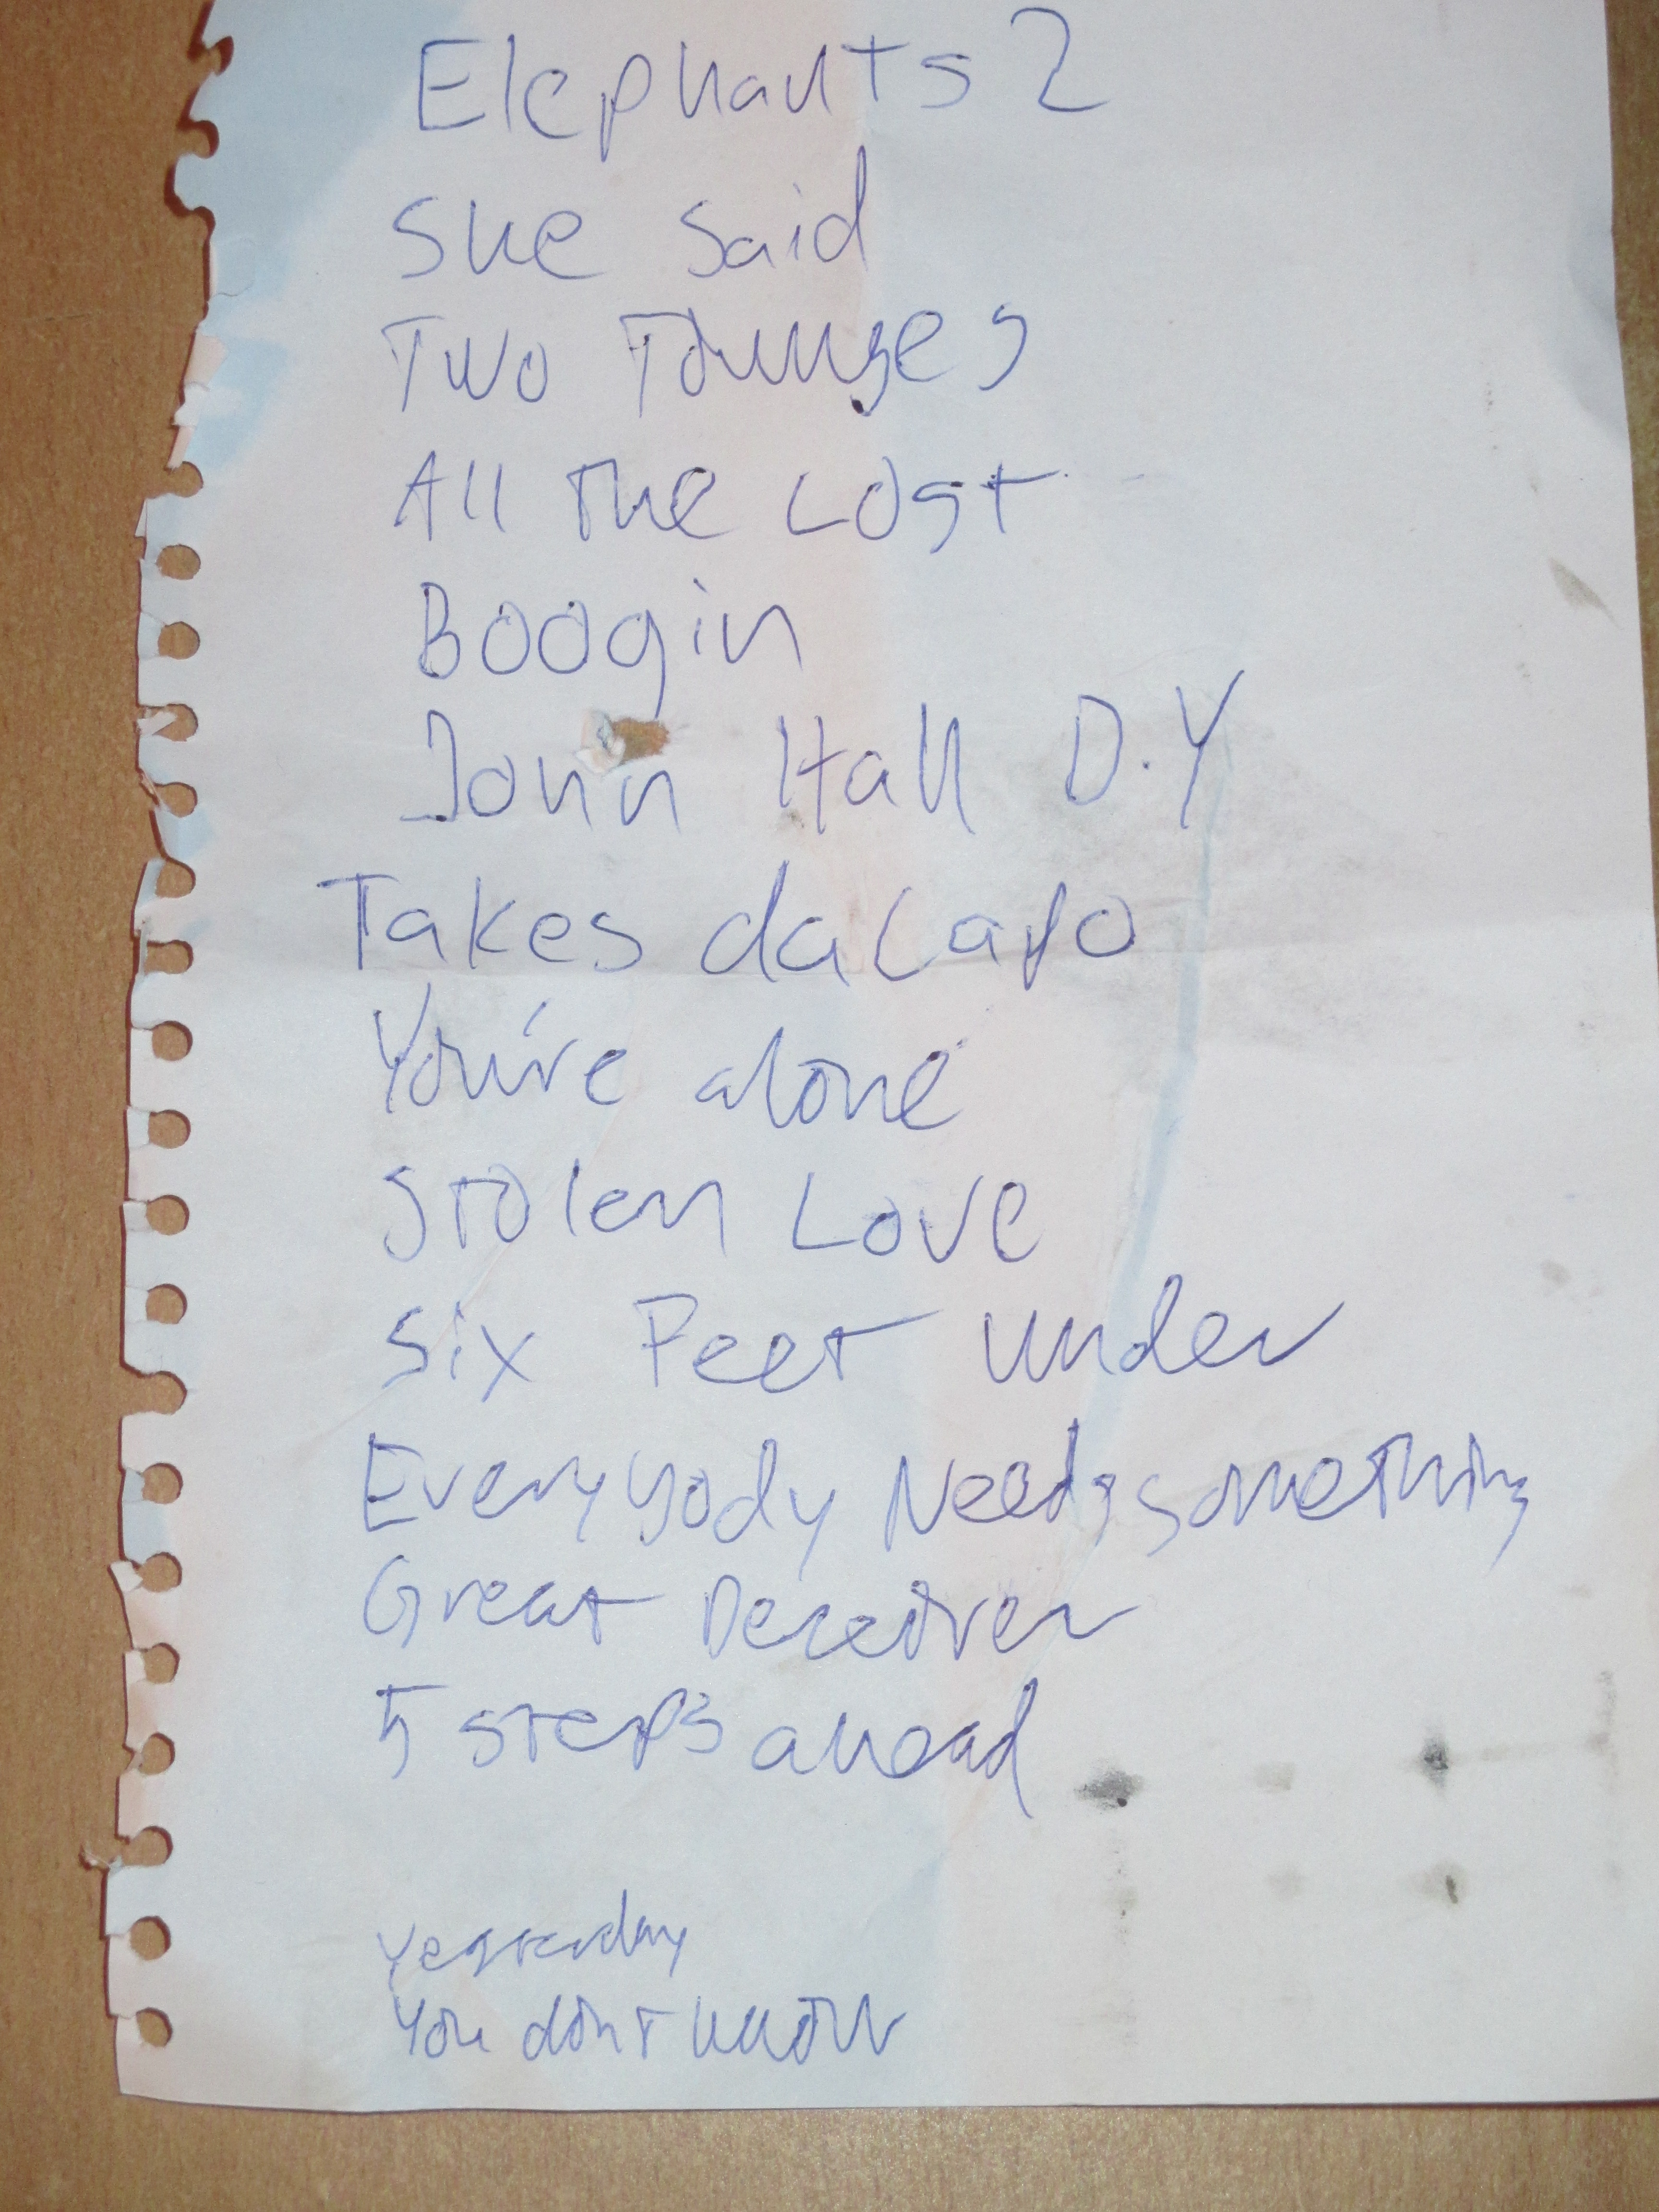 Elephants 2
She said
Two Tounges
All The Lost
Boogin
John Hall D.Y
Takes da Capo
You're alone
Stolen Love
Six Feet under
Everybody Needs something
Great Deceiver
5 steps ahead
Yesterday
You don't know